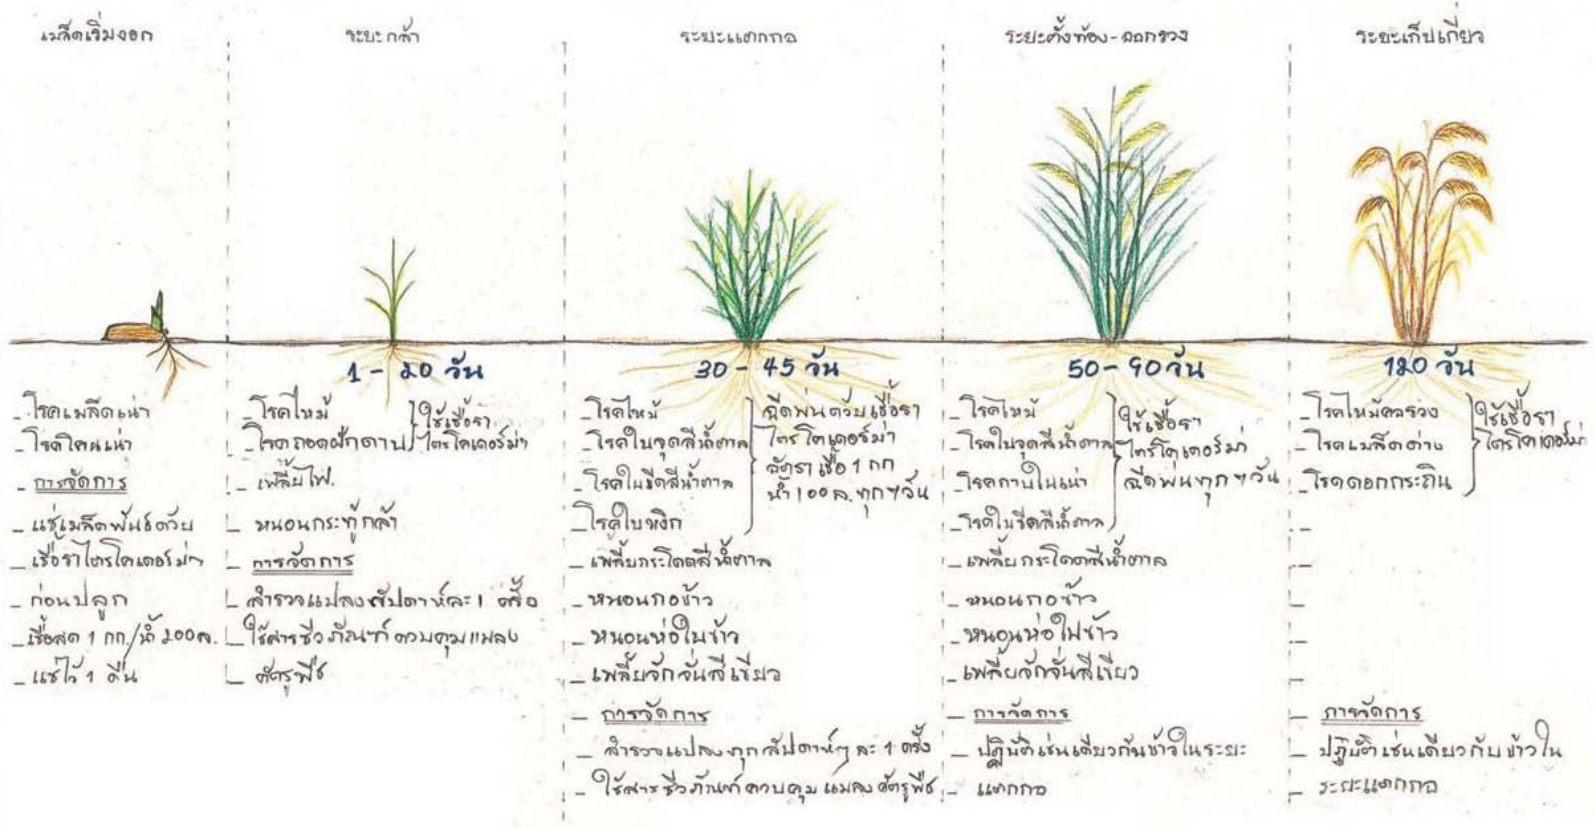 เมล็ดเริ่มงอก
_ โรคเมล็ดเน่า
_ โรคโคนเน่า
_ การจัดการ
_ แช่เมล็ดพันธ์ด้วย
_ เชื้อราไตรโคเดอร์ม่า
_ ก่อนปลูก
_ เชื้อสด 1 กก./น้ำ 200ล.
_ แช่ไว้ 1 คืน
ระยะกล้า
1 - 20 วัน
_ โรคไหม้
_ โรคถอดฝักดาบ
ใช้เชื้อรา
ไตรโคเดอร์ม่า
_ เพลี้ยไฟ.
_ หนอนกระทู้กล้า
_ การจัดการ
_ สำรวจแปลงสัปดาห์ละ 1 ครั้ง
_ ใช้สารชีวภัณฑ์ควบคุมแมลง
_ ศัตรูพืช
ระยะแตกกอ
30 - 45 วัน
_ โรคไหม้
_ โรคใบจุดสีน้ำตาล
_ โรคใบขีดสีน้ำตาล
_ โรคใบหงิก
ฉีดพ่นด้วยเชื้อรา
ไตรโคเดอร์ม่า
อัตราเชื้อ 1 กก
น้ำ 100 ล. ทุก 7 วัน
_ เพลี้ยกระโดดสีน้ำตาล
_ หนอนกอข้าว
_ หนอนห่อใบข้าว
_ เพลี้ยจักจั่นสีเขียว
_ การจัดการ
_ สำรวจแปลงทุกสัปดาห์ๆ ละ 1 ครั้ง
_ ใช้สารชีวภัณฑ์ควบคุมแมลงศัตรูพืช
ระยะตั้งท้อง-ออกรวง
50 - 90 วัน
_ โรคไหม้
_ โรคใบจุดสีน้ำตาล
_ โรคกาบใบเน่า
_ โรคใบขีดสีน้ำตาล
ใช้เชื้อรา
ไตรโคเดอร์ม่า
ฉีดพ่นทุก 7 วัน
_ เพลี้ยกระโดดสีน้ำตาล
_ หนอนกอข้าว
_ หนอนห่อใบข้าว
_ เพลี้ยจักจั่นสีเขียว
_ การจัดการ
_ ปฏิบัติเช่นเดียวกับข้าวในระยะ
_ แตกกอ
ระยะเก็บเกี่ยว
120 วัน
_ โรคไหม้คอรวง
_ โรคเมล็ดด่าง
_ โรคดอกกระถิน
ใช้เชื้อรา
ไตรโคเดอร์ม่า
_ การจัดการ
_ ปฏิบัติเช่นเดียวกับข้าวใน
_ ระยะแตกกอ